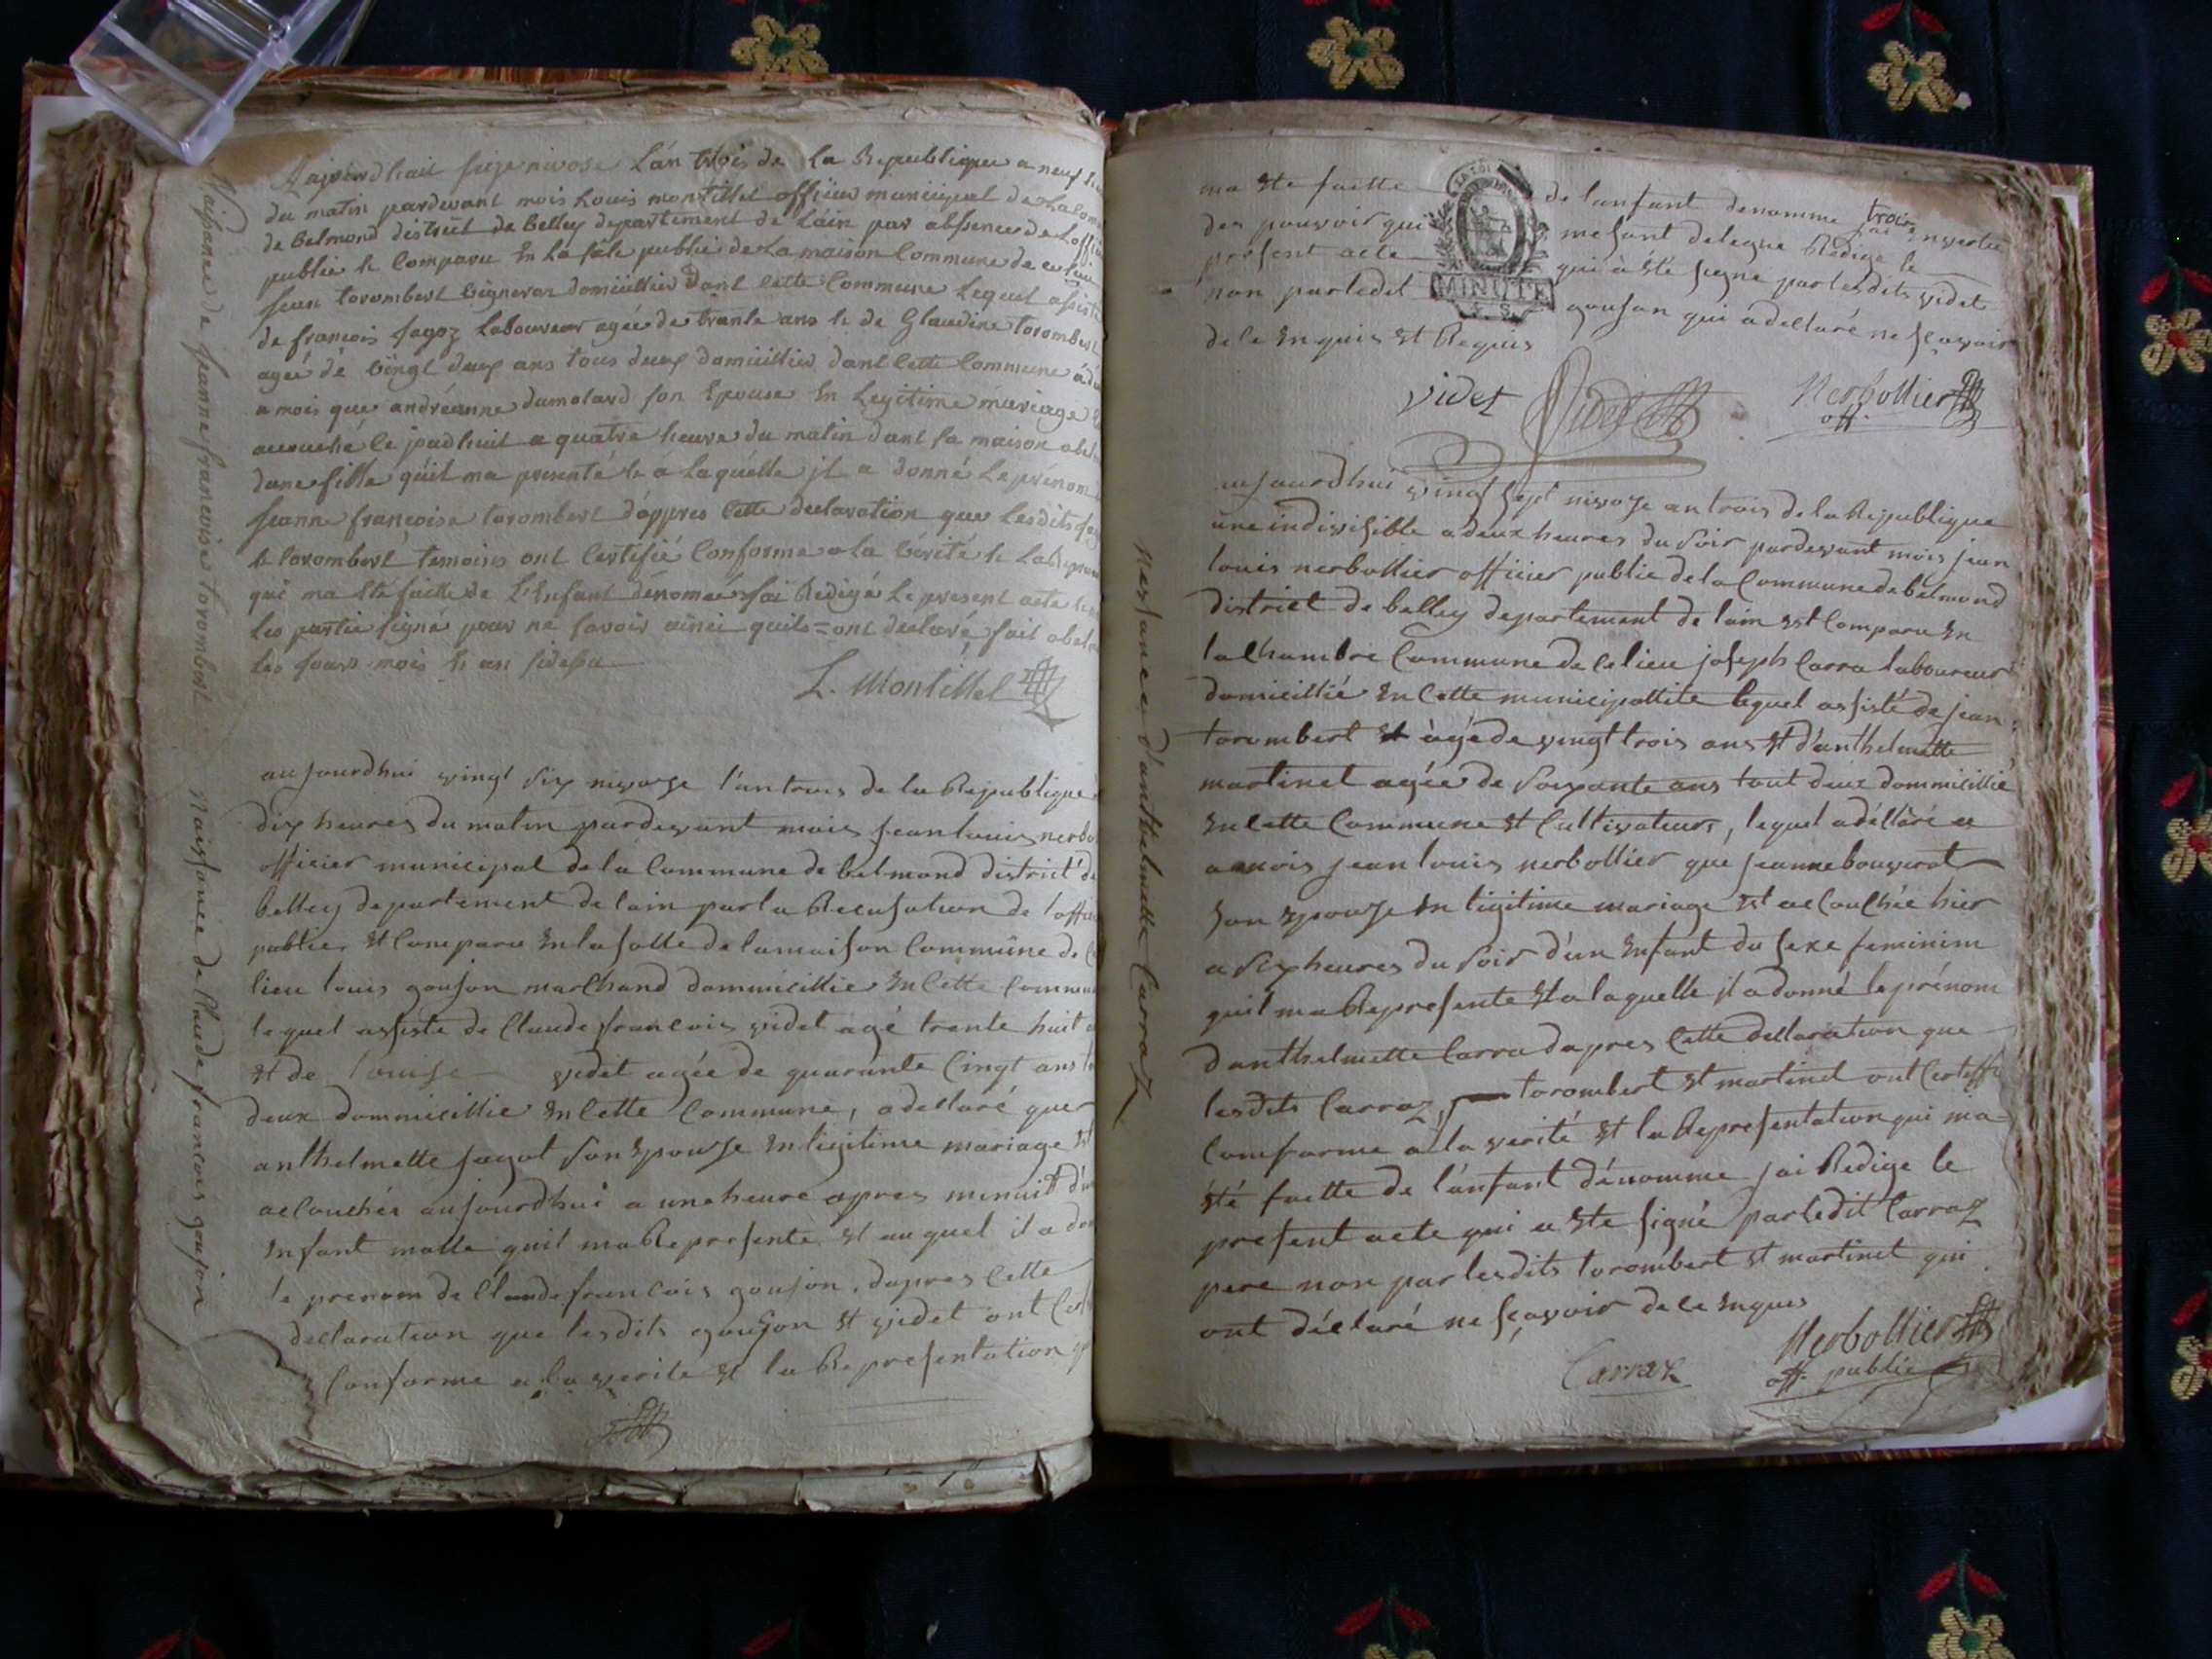 Naissance de jeanne francoise torombert
Aujourdhuit seize nivose L'an trois de La Republique a neuf
du matin pardevant mois Louis montillet officier municipal de La
de Belmond district de Belley departement de Lain par absence de Loffi
public & Comparu En La sale public de La maison Commune de ce lieu
jean torombert vigneron domicillier dant cette Commune Lequel assisté
de francois fagoz Laboureur ageé de trante ans & de Glaudine torombert
ageé dé vingt deux ans tous deux domicillier dant Cette Commune a
a mois que andréanne dumolard son Epouse En Legitime mariage
accouché ce jourdhuit a quatre heure du matin dant sa maison
dune fille quil ma presenté & à Laquelle jl a donné Le prénom
jeanne françoise torombert d'appres Cette declaration que Lesdits
& torombert temoins ont Certifié Conforme a La vérité & La
qui ma Eté faitte de L'Enfant dénomé jai Redigé Le present acte
Les partie signé pour ne savoir ainsi quils = ont declaré fait a
Les jours mois & an sidessu
L. Montillet
Naissance de Claude francois goujon
aujourdhui vingt six nivoze l'an trois de la Republique
dix heures du matin pardevant mois jean louis nerbo
officier municipal de la Commune de belmond district de
belley departement de lain par la Recusation de l'offi
public, Et Comparu En la salle de la maison Commune de
lieu louis goujon marChand dommicillie En Cette Commu
lequel assiste de Claude francois videt agé trente huit
Et de louise videt agée de quarante Cingt ans
deux dommicillie En Cette Commune, a dellaré que
anthelmette fagot son Epouze En ligitime mariage Et
acCouchée aujourdhui a une heure apres minuit d'u
Enfant malle quil ma Representé Et auquel il a do
le prenom de Claude francois goujon, dapres Cette
dellaration que lesdits goujon Et videt ont
Conforme a la verité Et la Representation
ma Ete faitte de lanfant denomme trois
des pouvoir qui me sont delegue Rédige le
present acte qui à Eté signe par lesdits videt
non par ledit goujon qui a dellaré ne sçavoir
de le Enquis Et Requis
MINUTE
videt Videt Nerbollier
off.
Nessance d'anthelmette Carraz
aujourdhui vingt sept nivoze an trois de la Republique
une indivisible a deux heures du soir pardevant mois jean
louis nerbollier officier public de la Commune de belmond
district de belley departement de lain est Comparu En
la Chambre Commune de Ce lieu joseph Carra laboureur
domicillié En Cette municipallite lequel assisté de jean
torombert Et àgé de vingt trois ans Et d'anthelmette
martinet agée de soixante ans tout deux dommicillie
En Cette Commune Et Cultivateurs, lequel a dellaré a
a mois jean louis nerbollier que jeanne bouverot
son Epouze En ligitime mariage Est acCouchée hier
a six heures du soir d'un Enfant du sexe feminim
quil ma Represente Et a laquelle il a donné le prénom
danthelmette Carra dapres Cette dellaration que
lesdits Carraz, torombert Et martinet ont Certiffi
Comforme a la verité Et la Representation qui ma
été faitte de l'anfant dénomme jai Redige le
present acte qui a Ete signé par ledit Carraz
pere non par lesdits torombert Et martinet qui
ont déclaré ne sçavoir de ce Enquis
Carraz Nerbollier
off. public